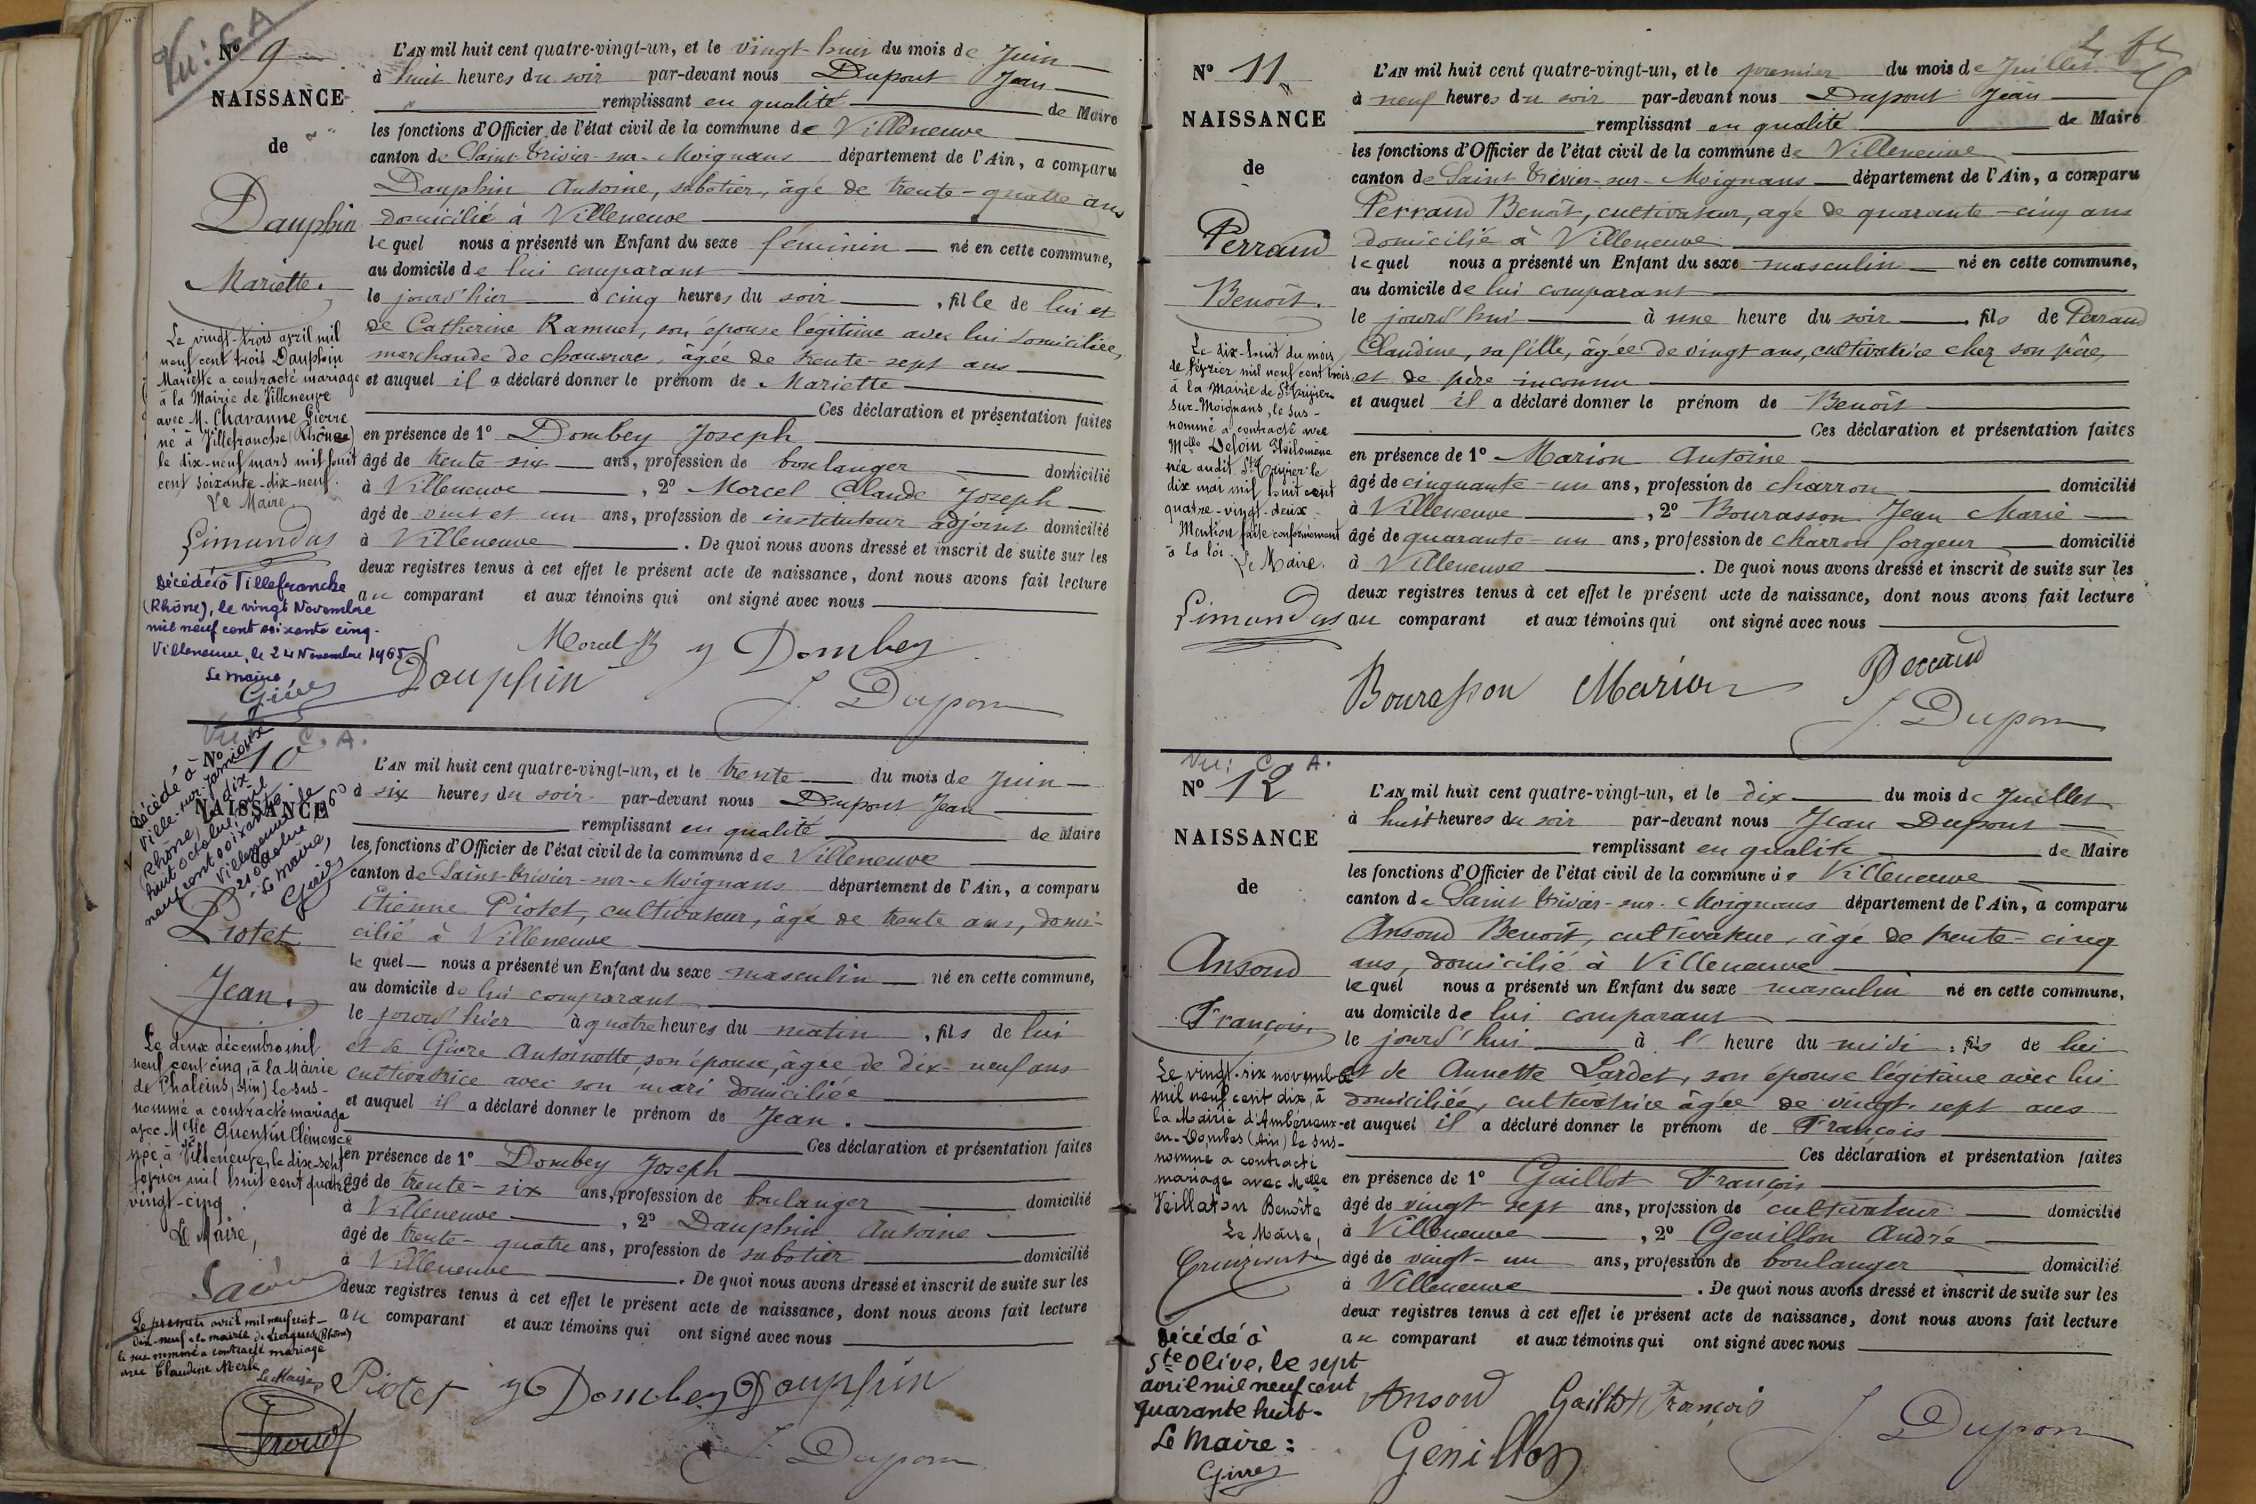 Vu: C A
N° 9
NAISSANCE
de
Dauphin
Mariette.
Le vingt-trois avril mil
neuf cent trois Dauphin
Mariette a contracté mariage
à la Mairie de Villeneuve
avec M. Chavanne Pierre
né à Villefranche (Rhône)
le dix-neuf mars mil huit
cent soixante-dix-neuf.
Le Maire
Limandas
Décédée à Villefranche
(Rhône), le vingt Novembre
mil neuf cent soixante cinq.
Villeneuve, le 24 Novembre 1965
Le maire
L'AN mil huit cent quatre-vingt-un, et le vingt-huit du mois de Juin
à huit heures du soir par-devant nous Dupont Jean
remplissant en qualité de Maire
les fonctions d'Officier de l'état civil de la commune de Villeneuve
canton de Saint-Trivier-sur-Moignans département de l'Ain, a comparu
Dauphin Antoine, sabotier, âgé de trente-quatre ans
domicilié à Villeneuve
lequel nous a présenté un Enfant du sexe féminin né en cette commune,
au domicile de lui comparant
le jourd'hier à cinq heures du soir, fille de lui et
de Catherine Ramuet, son épouse légitime avec lui domiciliée,
marchande de chaussures, âgée de trente-sept ans
et auquel il a déclaré donner le prénom de Mariette
Ces déclaration et présentation faites
en présence de 1° Dombey Joseph
âgé de trente-six ans, profession de boulanger domicilié
à Villeneuve, 2° Morcel Claude Joseph
âgé de vingt et un ans, profession de instituteur adjoint domicilié
à Villeneuve. De quoi nous avons dressé et inscrit de suite sur les
deux registres tenus à cet effet le présent acte de naissance, dont nous avons fait lecture
au comparant et aux témoins qui ont signé avec nous
Morcel Dombey
Dauphin J. Dupont
Vu: C. A.
N° 10
NAISSANCE
Décédé à
Ville-sur-Jarnioux
Rhône, le dix
huit octobre mil
neuf cent soixante
Villeneuve le
21 octobre 1960
Le maire,
Piotet
Jean.
Le deux décembre mil
neuf cent cinq, à la Mairie
de Chaleins, (Ain) le sus-
nommé a contracté mariage
avec Melle Quentin Clémence
née à Villeneuve, le dix-sept
février mil huit cent quatre
vingt-cinq
Le Maire,
Le premier avril mil neuf cent
dix-neuf à la mairie de Liergues (Rhône)
le sus nommé a contracté mariage
avec Claudine Merle
Le Maire
L'AN mil huit cent quatre-vingt-un, et le trente du mois de Juin
à six heures du soir par-devant nous Dupont Jean
remplissant en qualité de Maire
les fonctions d'Officier de l'état civil de la commune de Villeneuve
canton de Saint-Trivier-sur-Moignans département de l'Ain, a comparu
Etienne Piotet, cultivateur, âgé de trente ans, domi-
cilié à Villeneuve
lequel nous a présenté un Enfant du sexe masculin né en cette commune,
au domicile de lui comparant
le jourd'hier à quatre heures du matin, fils de lui
et de Givre Antoinette, son épouse, âgée de dix-neuf ans
cultivatrice avec son mari domiciliée
et auquel il a déclaré donner le prénom de Jean.
Ces déclaration et présentation faites
en présence de 1° Dombey Joseph
âgé de trente-six ans, profession de boulanger domicilié
à Villeneuve, 2° Dauphin Antoine
âgé de trente-quatre ans, profession de sabotier domicilié
à Villeneuve. De quoi nous avons dressé et inscrit de suite sur les
deux registres tenus à cet effet le présent acte de naissance, dont nous avons fait lecture
au comparant et aux témoins qui ont signé avec nous
Piotet Dombey Dauphin
J. Dupont
N° 11
NAISSANCE
de
Perraud
Benoît.
Le dix-huit du mois
de février mil neuf cent trois
à la Mairie de St Trivier
sur-Moignans, le sus-
nommé a contracté avec
Melle Philomène
née audit St Trivier le
dix mai mil huit cent
quatre-vingt-deux.
Mention faite conformément
à la loi.
Le Maire.
Limandas
L'AN mil huit cent quatre-vingt-un, et le premier du mois de Juillet
à neuf heures du soir par-devant nous Dupont Jean
remplissant en qualité de Maire
les fonctions d'Officier de l'état civil de la commune de Villeneuve
canton de Saint Trivier-sur-Moignans département de l'Ain, a comparu
Perraud Benoît, cultivateur, âgé de quarante-cinq ans
domicilié à Villeneuve
lequel nous a présenté un Enfant du sexe masculin né en cette commune,
au domicile de lui comparant
le jourd'hui à une heure du soir, fils de Perraud
Claudine, sa fille, âgée de vingt ans, cultivatrice chez son père,
et de père inconnu
et auquel il a déclaré donner le prénom de Benoît
Ces déclaration et présentation faites
en présence de 1° Marion Antoine
âgé de cinquante-un ans, profession de charron domicilié
à Villeneuve, 2° Bourasson Jean Marie
âgé de quarante-un ans, profession de charron forgeur domicilié
à Villeneuve. De quoi nous avons dressé et inscrit de suite sur les
deux registres tenus à cet effet le présent acte de naissance, dont nous avons fait lecture
au comparant et aux témoins qui ont signé avec nous
Bourasson Marion Perraud
J. Dupont
Vu: C. A.
N° 12
NAISSANCE
de
Ansoud
François.
Le vingt-six novembre
mil neuf cent dix, à
la Mairie d'Ambérieux-
en-Dombes (Ain) le sus-
nommé a contracté
mariage avec Melle
Veillaton Benoîte
Le Maire,
Décédé à
Ste Olive, le sept
avril mil neuf cent
quarante huit.
Le Maire:
L'AN mil huit cent quatre-vingt-un, et le dix du mois de Juillet
à huit heures du soir par-devant nous Jean Dupont
remplissant en qualité de Maire
les fonctions d'Officier de l'état civil de la commune de Villeneuve
canton de Saint Trivier-sur-Moignans département de l'Ain, a comparu
Ansoud Benoît, cultivateur, âgé de trente-cinq
ans, domicilié à Villeneuve
lequel nous a présenté un Enfant du sexe masculin né en cette commune,
au domicile de lui comparant
le jourd'hui à l' heure du midi, fils de lui
et de Annette Lardet, son épouse légitime avec lui
domiciliée, cultivatrice âgée de vingt-sept ans
et auquel il a déclaré donner le prénom de François
Ces déclaration et présentation faites
en présence de 1° Gaillot François
âgé de vingt sept ans, profession de cultivateur domicilié
à Villeneuve, 2° Genillon André
âgé de vingt-un ans, profession de boulanger domicilié
à Villeneuve. De quoi nous avons dressé et inscrit de suite sur les
deux registres tenus à cet effet le présent acte de naissance, dont nous avons fait lecture
au comparant et aux témoins qui ont signé avec nous
Ansoud Gaillot François
Genillon J. Dupont